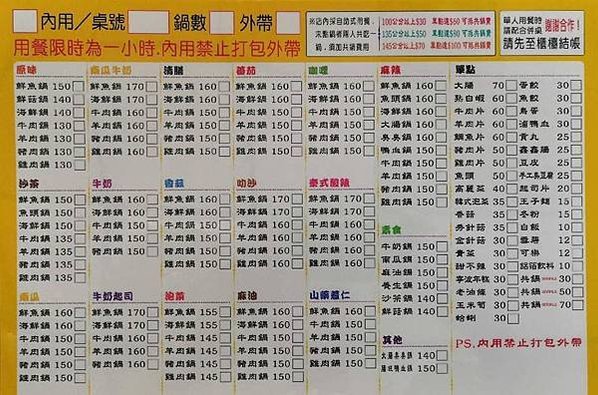 內用／桌號 鍋數 外帶
用餐限時為一小時.內用禁止打包外帶
※店內採自助式用餐,
未點鍋者兩人共吃一
鍋,須加共鍋費用
100公分以上$30
135公分以上$50
單點達$60 可抵共鍋費
單人用餐時
請配合併桌 謝謝合作！
請先至櫃檯結帳
原味
鮮魚鍋 150
鮮菇鍋 140
海鮮鍋 140
牛肉鍋 130
羊肉鍋 130
豬肉鍋 130
雞肉鍋 130
南瓜牛奶
鮮魚鍋 170
海鮮鍋 170
牛肉鍋 160
羊肉鍋 160
豬肉鍋 160
雞肉鍋 160
清膳
鮮魚鍋 160
海鮮鍋 160
牛肉鍋 150
羊肉鍋 150
豬肉鍋 150
雞肉鍋 150
番茄
鮮魚鍋 160
海鮮鍋 160
牛肉鍋 150
羊肉鍋 150
豬肉鍋 150
雞肉鍋 150
咖哩
鮮魚鍋 160
海鮮鍋 160
牛肉鍋 150
羊肉鍋 150
豬肉鍋 150
雞肉鍋 150
麻辣
鮮魚鍋 160
魚頭鍋 160
海鮮鍋 160
大腸鍋 160
臭臭鍋 160
鴨血鍋 150
牛肉鍋 150
羊肉鍋 150
豬肉鍋 150
雞肉鍋 150
沙茶
鮮魚鍋 150
魚頭鍋 150
海鮮鍋 150
牛肉鍋 135
羊肉鍋 135
豬肉鍋 135
雞肉鍋 135
牛奶
鮮魚鍋 160
海鮮鍋 160
牛肉鍋 150
羊肉鍋 150
豬肉鍋 150
雞肉鍋 150
香菇
鮮魚鍋 160
海鮮鍋 160
牛肉鍋 150
羊肉鍋 150
豬肉鍋 150
雞肉鍋 150
叻沙
鮮魚鍋 160
海鮮鍋 160
牛肉鍋 150
羊肉鍋 150
豬肉鍋 150
雞肉鍋 150
泰式酸辣
鮮魚鍋 160
海鮮鍋 160
牛肉鍋 150
羊肉鍋 150
豬肉鍋 150
雞肉鍋 150
素食
牛奶鍋 150
南瓜鍋 150
麻油鍋 150
養生鍋 150
沙茶鍋 140
鮮菇鍋 140
南瓜
鮮魚鍋 160
海鮮鍋 160
牛肉鍋 150
羊肉鍋 150
豬肉鍋 150
雞肉鍋 150
牛奶起司
鮮魚鍋 170
海鮮鍋 170
牛肉鍋 160
羊肉鍋 160
豬肉鍋 160
雞肉鍋 160
泡菜
鮮魚鍋 155
海鮮鍋 155
牛肉鍋 145
羊肉鍋 145
豬肉鍋 145
雞肉鍋 145
麻油
鮮魚鍋 160
海鮮鍋 160
牛肉鍋 150
羊肉鍋 150
豬肉鍋 150
雞肉鍋 150
山藥薏仁
鮮魚鍋 160
海鮮鍋 160
牛肉鍋 150
羊肉鍋 150
豬肉鍋 150
雞肉鍋 150
其他
大腸臭臭鍋 140
鴨血鍋 150
單點
大腸 70
熟白蝦 60
牛肉片 60
羊肉片 60
鯛魚片 60
豬肉片 50
雞肉片 50
魚頭 50
高麗菜 40
韓式泡菜 35
香菇 35
秀針菇 35
金針菇 30
青菜 30
甜不辣 30
寧波年糕 30
老油條 30
玉米筍 30
蛤蜊 30
蛋餃 30
魚餃 30
魚蛋 30
滷鴨血 30
貢丸 25
鑫鑫腸 25
豆皮 25
手工臭豆腐 25
起司片 20
王子麵 15
冬粉 15
白飯 10
雞蛋 12
可樂 12
鋁箔飲料 10
共鍋 30
共鍋 50
共鍋 70
PS.內用禁止打包外帶